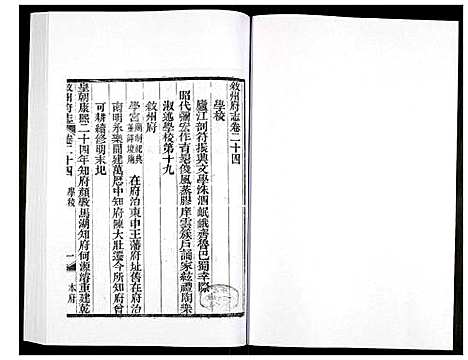 敘州府志卷二十四
學校
廬江剖符振興文學洙泗岷峨齊魯巴蜀幸際
昭代彌宏作育髦俊風蒸膠庠雲族戶誦家絃禮陶樂
淑述學校第十九
敘州府
學宮 在府治東申王藩府址舊在府治
南明永樂間建萬歷中知府陳大壯遷今所知府曾
可耕續修明末圮
皇朝康熙二十四年知府顏敏馬湖知府何源濬重建乾
敘州府志 卷二十四 學校 一 本府